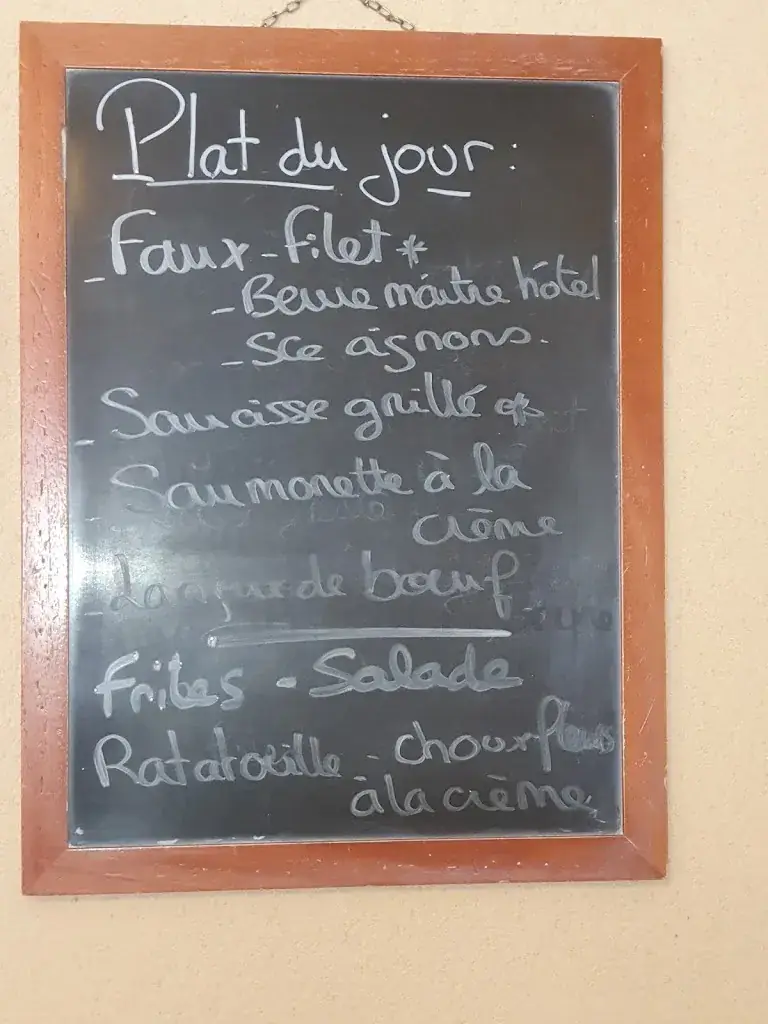 Plat du jour :
- Faux-filet *
- Beurre maitre hôtel
- Sce oignons.
- Saucisse grillé *
- Saumonette à la
crème
- Langue de boeuf
Frites - Salade
Ratatouille - chouxfleurs
à la crème